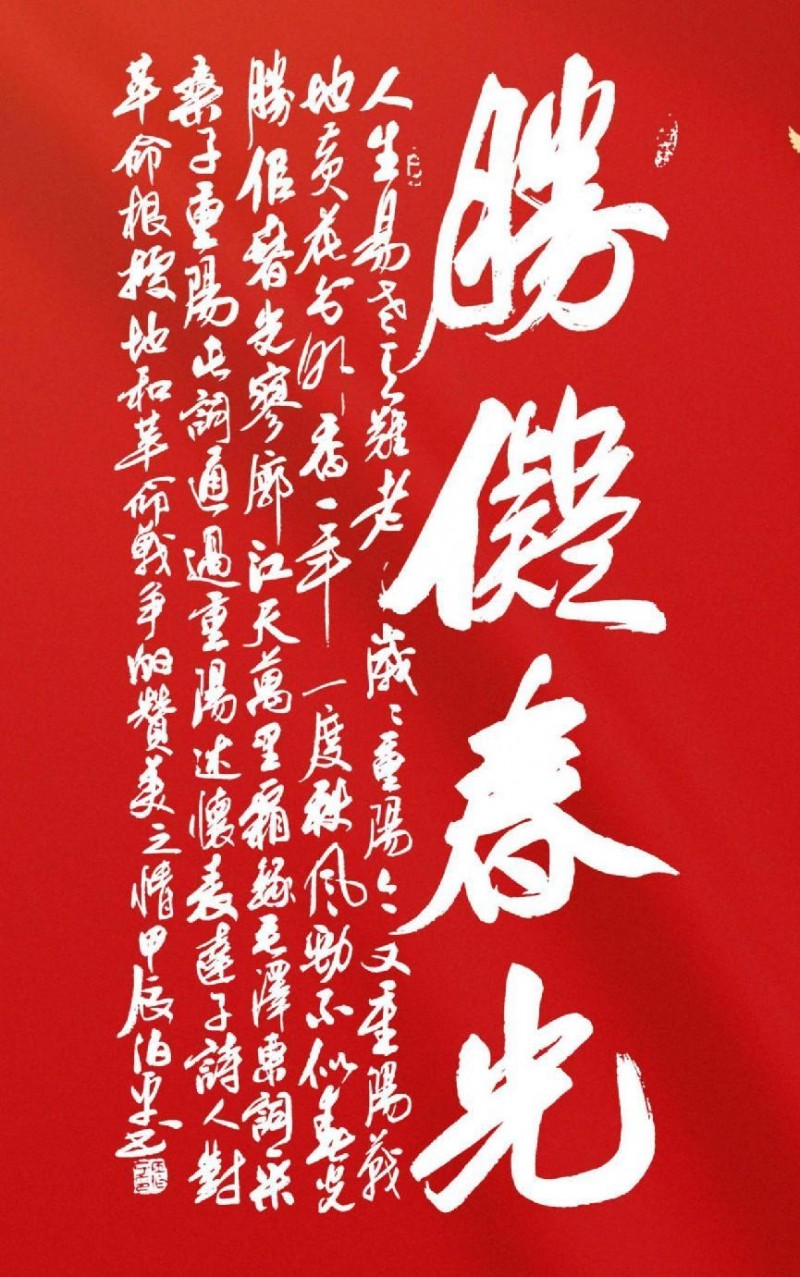 勝儗春光
人生易老天難老歲々重陽今又重陽戰
地黃花分外香一年一度秋風勁不似春光
勝似春光寥廓江天萬里霜錄毛澤東詞采
桑子重陽此詞通過重陽述懷表達了詩人對
革命根據地和革命戰爭的贊美之情甲辰伯